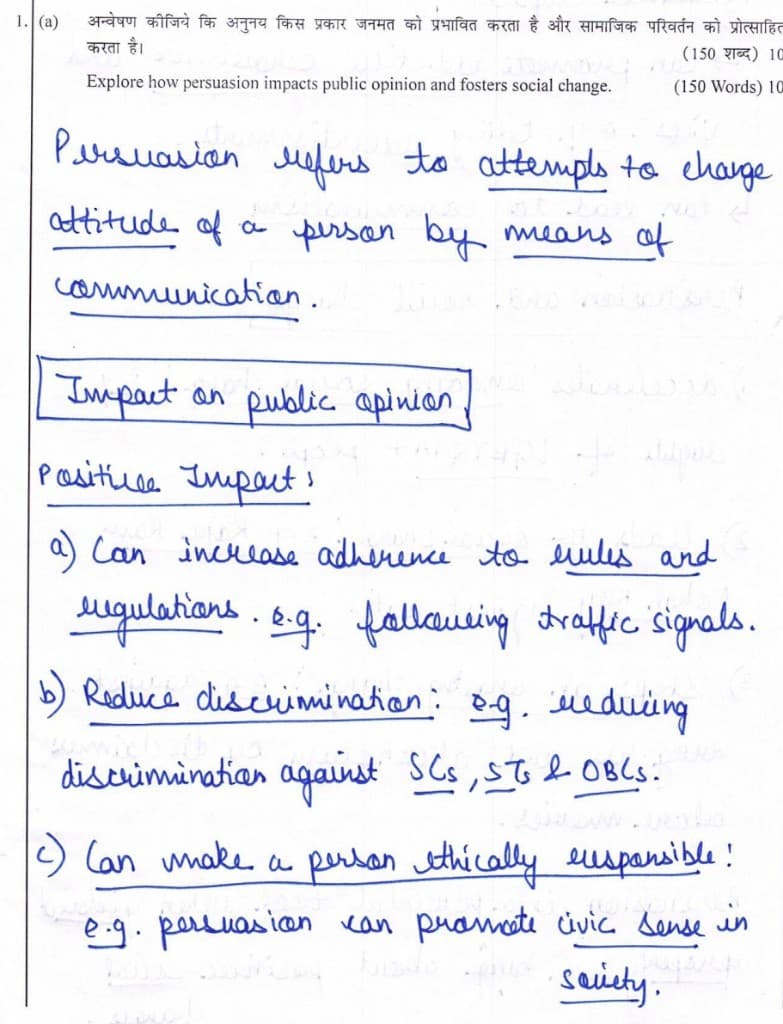 1. (a) अन्वेषण कीजिये कि अनुनय किस प्रकार जनमत को प्रभावित करता है और सामाजिक परिवर्तन को प्रोत्साहित
करता है। (150 शब्द) 10
Explore how persuasion impacts public opinion and fosters social change. (150 Words) 10
Persuasion refers to attempts to change
attitude of a person by means of
communication.
Impact on public opinion
Positive Impact:
a) Can increase adherence to rules and
regulations. e.g. following traffic signals.
b) Reduce discrimination: e.g. reducing
discrimination against SCs, STs & OBCs.
c) Can make a person ethically responsible:
e.g. persuasion can promote civic sense in
society.